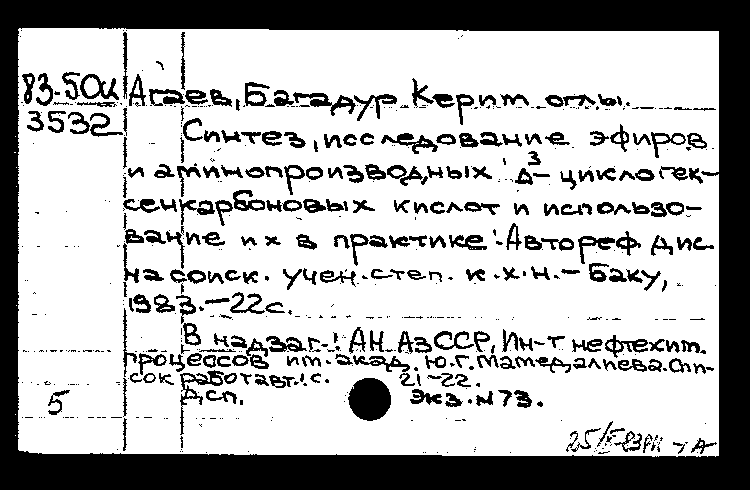 83-50к Агаев, Багадур Керим оглы.
3532
Синтез, исследование эфиров
и аминопроизводных Δ³- циклогек-
сенкарбоновых кислот и использо-
вание их в практике: Автореф. дис.
на соиск. учен. степ. к.х.н. – Баку,
1983. – 22 с.
В надзаг.: АН АзССР, Ин-т нефтехим.
процессов им. акад. Ю.Г. Мамедалиева. Спи-
сок работ авт.: с. 21-22.
5 Дсп. Экз. N 73.